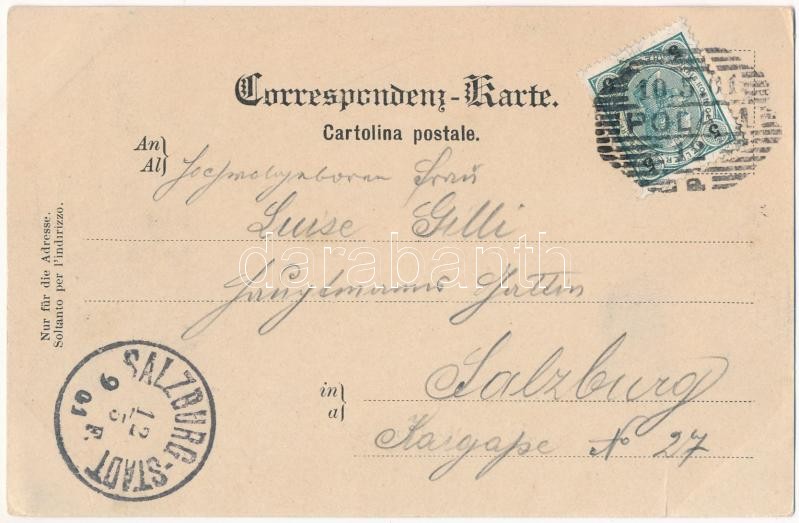 Correspondenz-Karte.
Cartolina postale.
An
Al
Hochwolgeboren Frau
Luise Gilli
Hauptmanns Gattin
in
a
Salzburg
Kaigaße No 27
Nur für die Adresse.
Soltanto per l'indirizzo.
SALZBURG-STADT
9 F.
12 5
01
10.5.01
POLA 1
5
5
5
darabanth